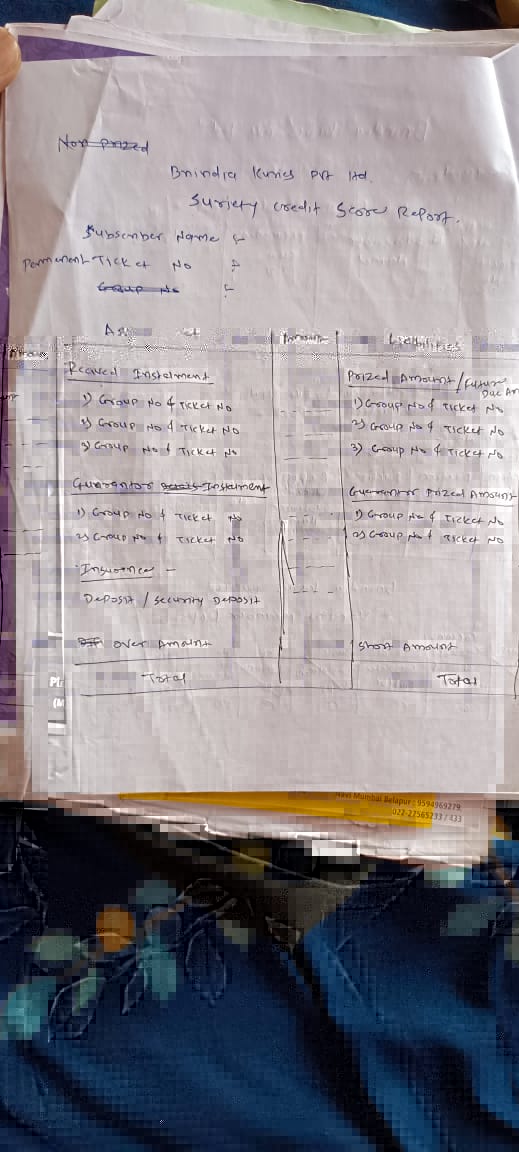 Non prized
Bnindia Kuries pvt ltd.
Suriety credit Score Report.
Subscriber Name :-
Permenent Ticket No :-
Group No :-
Liabilities
Recived Instalment
Prized Amount / Future
Due Am
1) Group No & Ticket No
1) Group No & Ticket No
2) Group No & Ticket No
2) Group No & Ticket No
3) Group No & Ticket No
3) Group No & Ticket No
Gurrantor Instalment
Guarrantor Prized Amount
1) Group No & Ticket No
1) Group No & Ticket No
2) Group No & Ticket No
2) Group No & Ticket No
Insurance -
Deposit / Security Deposit
over Amount
Short Amount
Total
Total
Navi Mumbai Belapur : 9594969279
022-27565233 / 433